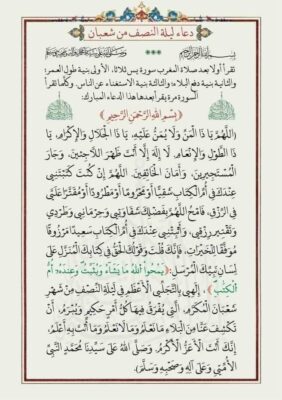 دعاء ليلة النصف من شعبان
بسم الله الرحمن الرحيم *** وصلى الله على سيدنا محمد وآله وصحبه وسلم
تقرأ أولا بعد صلاة المغرب سورة يس ثلاثا، الأولى بنية طول العمر؛
والثانية بنية دفع البلاء؛ والثالثة بنية الاستغناء عن الناس. وكلما تقرأ
السورة مرة يقرأ بعدها هذا الدعاء المبارك:
﴿بِسْمِ اللهِ الرَّحْمَنِ الرَّحِيمِ﴾
اللَّهُمَّ يَا ذَا الْمَنِّ وَلَا يُمَنُّ عَلَيْهِ، يَا ذَا الْجَلَالِ وَالْإِكْرَامِ، يَا
ذَا الطَّوْلِ وَالْإِنْعَامِ. لَا إِلَهَ إِلَّا أَنْتَ ظَهْرَ اللَّاجِئِينَ، وَجَارَ
الْمُسْتَجِيرِينَ، وَأَمَانَ الْخَائِفِينَ. اللَّهُمَّ إِنْ كُنْتَ كَتَبْتَنِي
عِنْدَكَ فِي أُمِّ الْكِتَابِ شَقِيًّا أَوْ مَحْرُومًا أَوْ مَطْرُودًا أَوْ مُقَتَّرًا عَلَيَّ
فِي الرِّزْقِ، فَامْحُ اللَّهُمَّ بِفَضْلِكَ شَقَاوَتِي وَحِرْمَانِي وَطَرْدِي
وَتَقْتِيرَ رِزْقِي، وَأَثْبِتْنِي عِنْدَكَ فِي أُمِّ الْكِتَابِ سَعِيدًا مَرْزُوقًا
مُوَفَّقًا لِلْخَيْرَاتِ، فَإِنَّكَ قُلْتَ وَقَوْلُكَ الْحَقُّ فِي كِتَابِكَ الْمُنَزَّلِ عَلَى
لِسَانِ نَبِيِّكَ الْمُرْسَلِ: ﴿يَمْحُوا اللَّهُ مَا يَشَاءُ وَيُثْبِتُ وَعِنْدَهُ أُمُّ
الْكِتَابِ﴾، إِلَهِي بِالتَّجَلِّي الْأَعْظَمِ فِي لَيْلَةِ النِّصْفِ مِنْ شَهْرِ
شَعْبَانَ الْمُكَرَّمِ، الَّتِي يُفْرَقُ فِيهَا كُلُّ أَمْرٍ حَكِيمٍ وَيُبْرَمُ، أَنْ
تَكْشِفَ عَنَّا مِنَ الْبَلَاءِ مَا نَعْلَمُ وَمَا لَا نَعْلَمُ وَمَا أَنْتَ بِهِ أَعْلَمُ،
إِنَّكَ أَنْتَ الْأَعَزُّ الْأَكْرَمُ. وَصَلَّى اللهُ عَلَى سَيِّدِنَا مُحَمَّدٍ النَّبِيِّ
الْأُمِّيِّ وَعَلَى آلِهِ وَصَحْبِهِ وَسَلَّمَ).